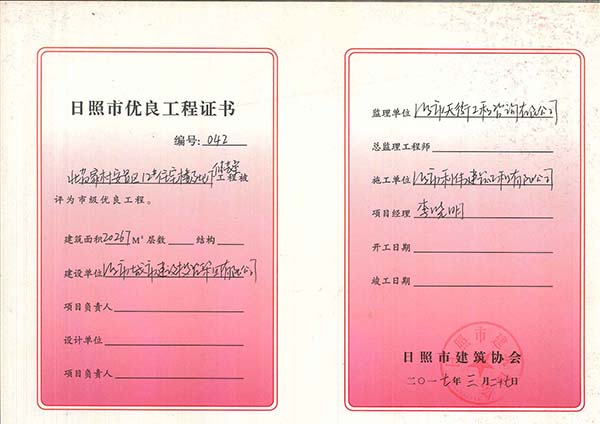 日照市优良工程证书
编号: 042
工程被
评为市级优良工程。
建筑面积20267M² 层数 结构
建设单位 日照市城市建设投资集团有限公司
项目负责人
设计单位
项目负责人
监理单位 日照市天衡工程咨询有限公司
总监理工程师
施工单位 日照市利伟建设工程有限公司
项目经理 李晓明
开工日期
竣工日期
日照市建筑协会
二〇一七年三月二十七日